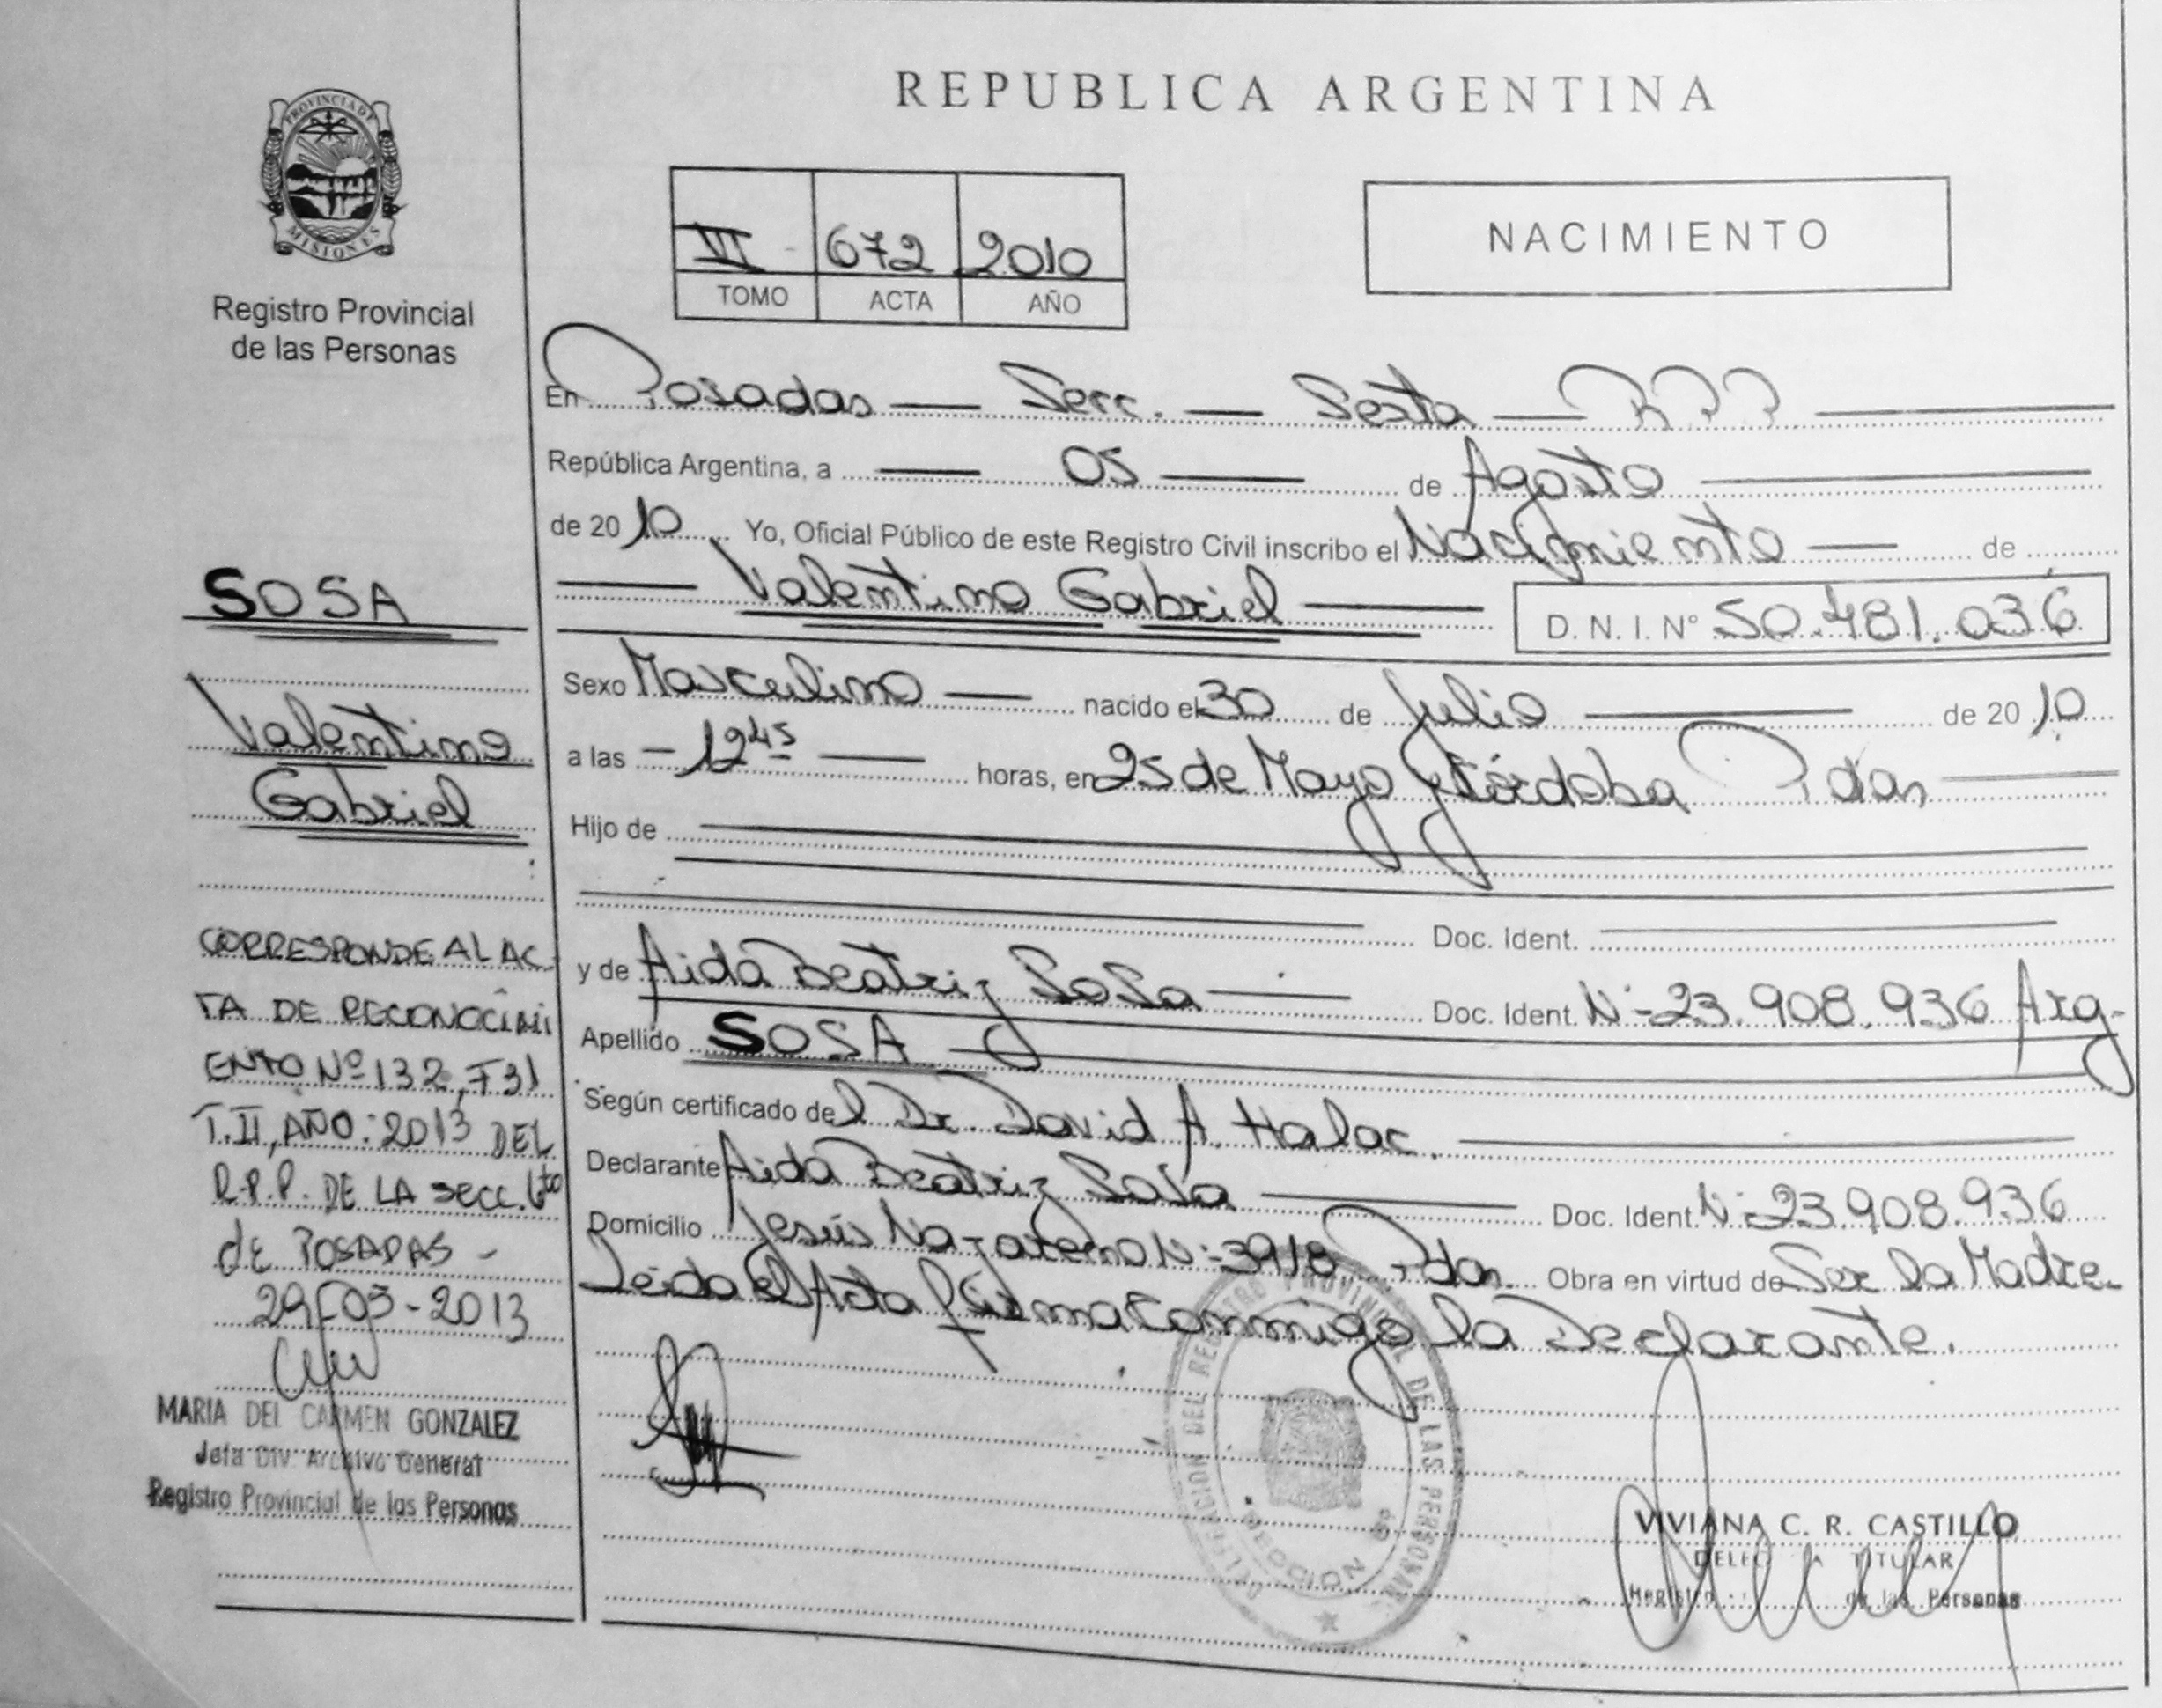 REPUBLICA ARGENTINA
PROVINCIA DE
MISIONES
Registro Provincial
de las Personas
672 2010
TOMO ACTA AÑO
NACIMIENTO
En Posadas — Secc. — Sexta — R.P.P.
República Argentina, a 05 de Agosto
de 2010 Yo, Oficial Público de este Registro Civil inscribo el Nacimiento — de
Valentino Gabriel D. N. I. Nº 50.481.036
Sexo Masculino — nacido el 30 de Julio de 2010
a las - 12 45 — horas, en 25 de Mayo y Córdoba Pdas
Hijo de
Doc. Ident.
y de Aida Beatriz Sosa — Doc. Ident. Nº 23.908.936 Arg-
Apellido SOSA
Según certificado del Dr. David A. Halac.
Declarante Aida Beatriz Sosa Doc. Ident. Nº 23.908.936
Domicilio Jesús Nazareno Nº 3918 Pdas. Obra en virtud de Ser la Madre-
Leida el Acta firma conmigo la Declarante.
SOSA
Valentino
Gabriel
CORRESPONDE AL AC
TA DE RECONOCIMI
ENTO Nº 132, F31
T.II, AÑO: 2013 DEL
R.P.P. DE LA SECC. 6ta
de POSADAS -
29-05-2013
MARIA DEL CARMEN GONZALEZ
Jefa Div. Archivo General
Registro Provincial de las Personas
DELEGACION DEL REGISTRO PROVINCIAL DE LAS PERSONAS
SECCION 6ª
VIVIANA C. R. CASTILLO
DELEGADA TITULAR
Registro de las Personas